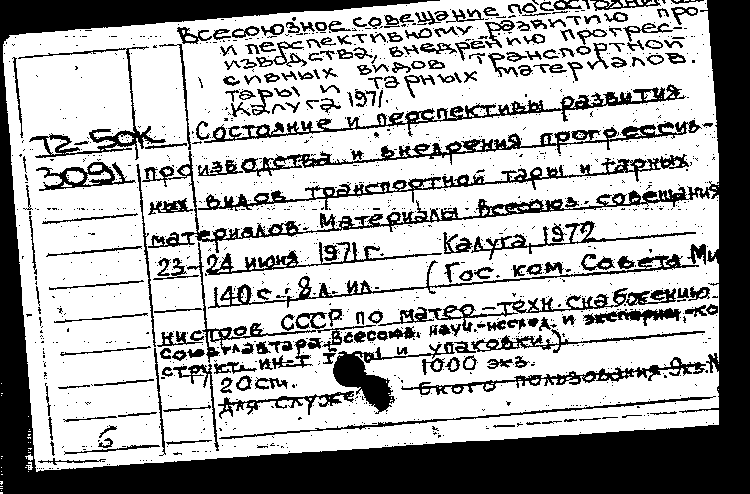 Всесоюзное совещание по состоянию
и перспективному развитию про-
изводства, внедрению прогрес-
сивных видов транспортной
тары и тарных материалов.
Калуга 1971.
Т2-50К Состояние и перспективы развития
3091 производства и внедрения прогрессив-
ных видов транспортной тары и тарных
материалов. Материалы Всесоюз. совещания
23-24 июня 1971 г. Калуга, 1972.
140 с.; 8 л. ил. (Гос. ком. Совета Ми
нистров СССР по матер.-техн. снабжению
Союзглавтара, Всесоюз. науч.-исслед. и эксперим.-ко
структ. ин-т тары и упаковки.)
20 см. 1000 экз.
Для служебного пользования. Экз. №
6